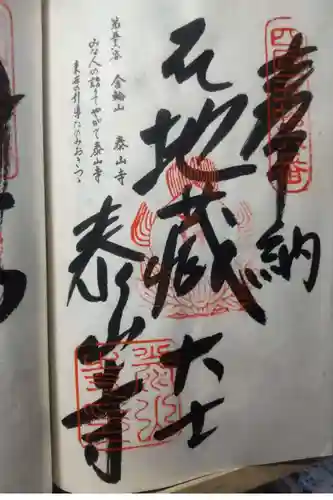 奉納
地蔵大士
泰山寺
第五十六番 金輪山 泰山寺
みな人の詣りてやがて泰山寺
来世の引導たのみおきつゝ